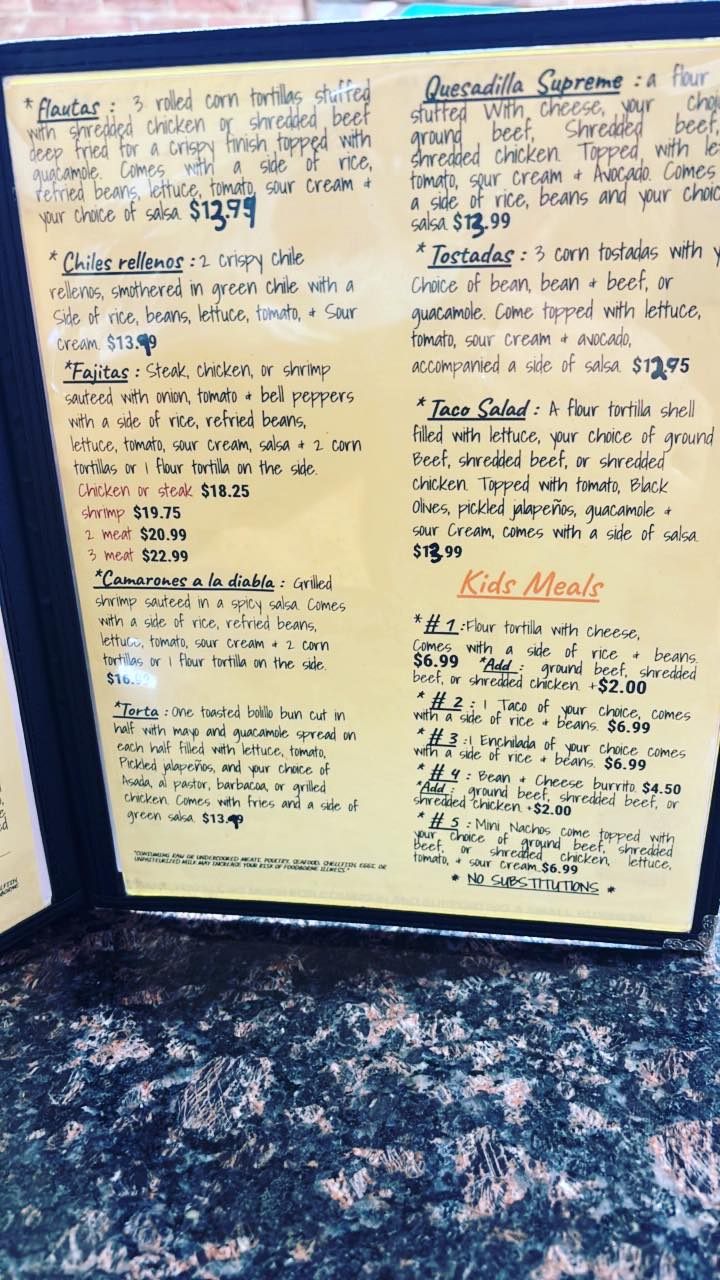 * Flautas : 3 rolled corn tortillas stuffed
with shredded chicken or shredded beef
deep fried for a crispy finish topped with
guacamole. Comes with a side of rice,
refried beans, lettuce, tomato, sour cream +
your choice of salsa. $13.99
* Chiles rellenos : 2 crispy chile
rellenos, smothered in green chile with a
Side of rice, beans, lettuce, tomato, + Sour
cream. $13.99
*Fajitas : Steak, chicken, or shrimp
sauteed with onion, tomato + bell peppers
with a side of rice, refried beans,
lettuce, tomato, sour cream, salsa + 2 corn
tortillas or 1 flour tortilla on the side.
Chicken or steak $18.25
shrimp $19.75
2 meat $20.99
3 meat $22.99
*Camarones a la diabla : Grilled
shrimp sauteed in a spicy salsa. Comes
with a side of rice, refried beans,
lettuce, tomato, sour cream + 2 corn
tortillas or 1 flour tortilla on the side.
*Torta : One toasted bolillo bun cut in
half with mayo and guacamole spread on
each half filled with lettuce, tomato,
Pickled jalapeños, and your choice of
Asada, al pastor, barbacoa, or grilled
chicken. Comes with fries and a side of
green salsa. $13.99
*CONSUMING RAW OR UNDERCOOKED MEATS, POULTRY, SEAFOOD, SHELLFISH, EGGS, OR
UNPASTEURIZED MILK MAY INCREASE YOUR RISK OF FOODBORNE ILLNESS*
Quesadilla Supreme : a flour
stuffed With cheese, your
ground beef, Shredded beef,
shredded chicken. Topped with
tomato, sour cream + Avocado. Comes
a side of rice, beans and your
salsa. $13.99
* Tostadas : 3 corn tostadas with
Choice of bean, bean + beef, or
guacamole. Come topped with lettuce,
tomato, sour cream + avocado,
accompanied a side of salsa. $12.95
* Taco Salad : A flour tortilla shell
filled with lettuce, your choice of ground
Beef, shredded beef, or shredded
chicken. Topped with tomato, Black
Olives, pickled jalapeños, guacamole +
sour Cream, comes with a side of salsa.
$13.99
Kids Meals
* # 1 :Flour tortilla with cheese,
Comes with a side of rice + beans.
$6.99 *Add : ground beef, shredded
beef, or shredded chicken. +$2.00
* # 2 : 1 Taco of your choice, comes
with a side of rice + beans. $6.99
* # 3 :1 Enchilada of your choice comes
with a side of rice + beans. $6.99
* # 4 : Bean + Cheese burrito. $4.50
*Add : ground beef, shredded beef, or
shredded chicken. +$2.00
* # 5 : Mini Nachos come topped with
your choice of ground beef, shredded
Beef, or shredded chicken, lettuce,
tomato, + sour cream.$6.99
* NO SUBSTITUTIONS *